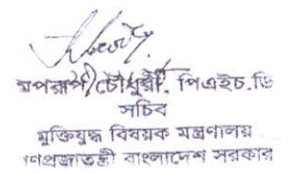 চৌধুরী, পিএইচ.ডি
সচিব
মুক্তিযুদ্ধ বিষয়ক মন্ত্রণালয়
গণপ্রজাতন্ত্রী বাংলাদেশ সরকার